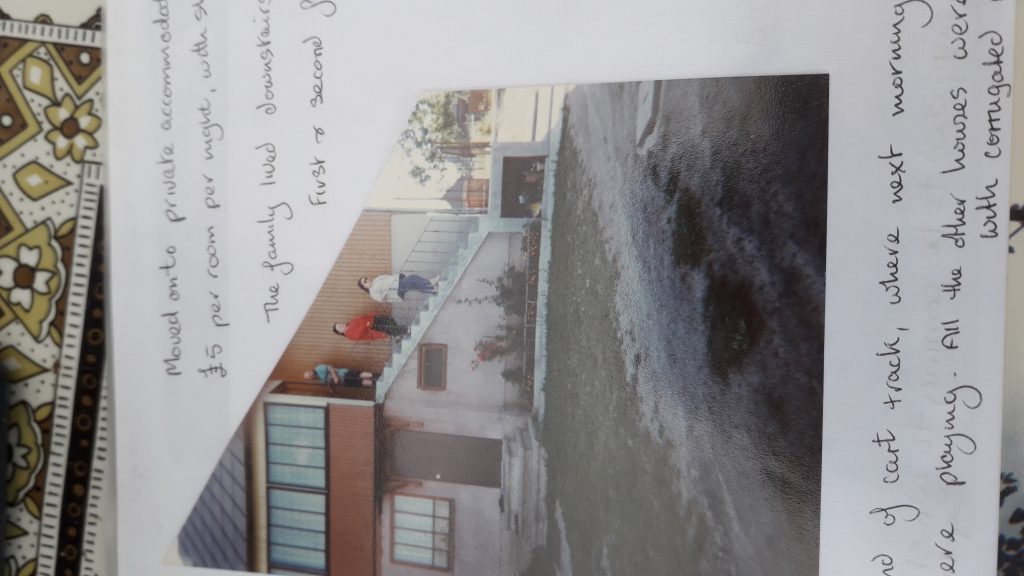 Moved onto private accommodat
£5 per room per night, with
The family lived downstairs
First & second
of cart track, where next morning
ere playing. All the other houses were
with corrugated